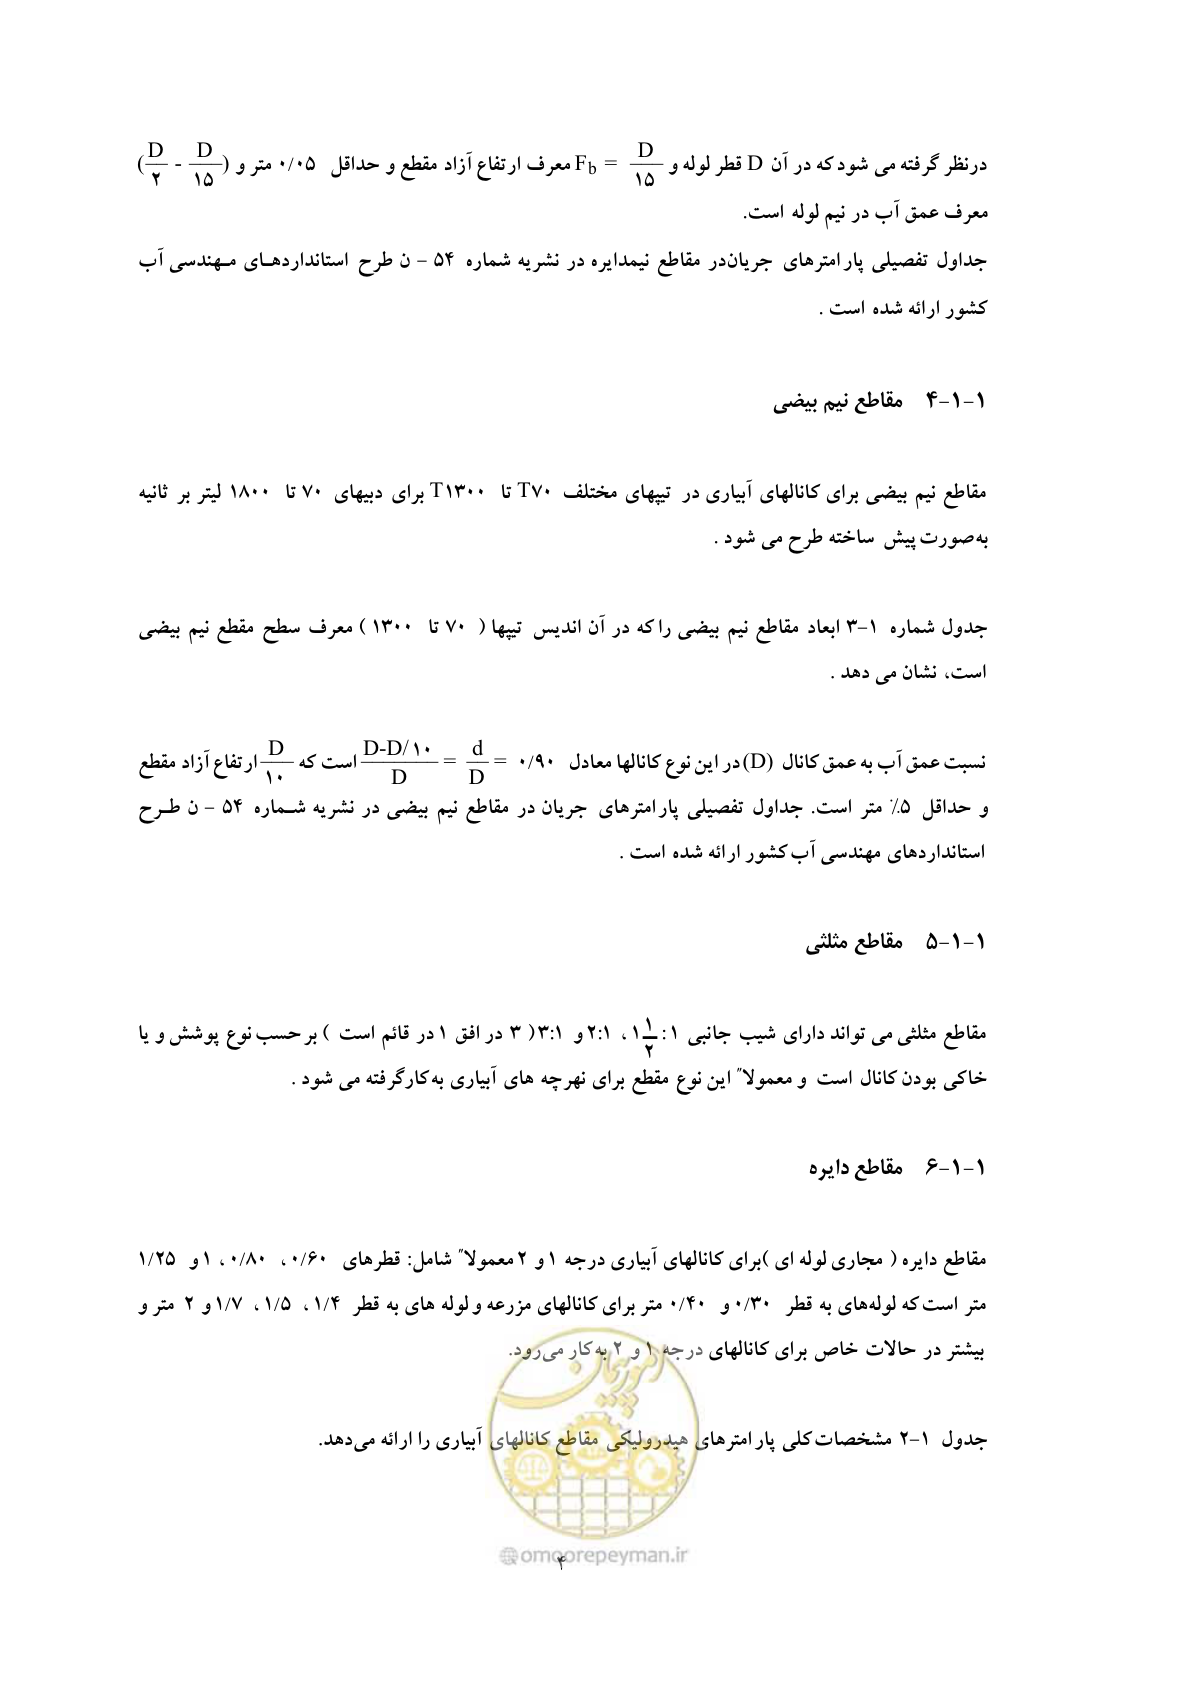 درنظر گرفته می شود که در آن D قطر لوله و F_b = D/۱۵ معرف ارتفاع آزاد مقطع و حداقل ۰/۰۵ متر و (D/۲ - D/۱۵)
معرف عمق آب در نیم لوله است.
جداول تفصیلی پارامترهای جریان‌در مقاطع نیمدایره در نشریه شماره ۵۴ – ن طرح استانداردهـای مـهندسی آب
کشور ارائه شده است .
۴-۱-۱ مقاطع نیم بیضی
مقاطع نیم بیضی برای کانالهای آبیاری در تیپهای مختلف T۷۰ تا T۱۳۰۰ برای دبیهای ۷۰ تا ۱۸۰۰ لیتر بر ثانیه
به‌صورت پیش ساخته طرح می شود .
جدول شماره ۱-۳ ابعاد مقاطع نیم بیضی را که در آن اندیس تیپها ( ۷۰ تا ۱۳۰۰ ) معرف سطح مقطع نیم بیضی
است، نشان می دهد .
نسبت عمق آب به عمق کانال (D) در این نوع کانالها معادل D-D/۱۰/D = d/D = ۰/۹۰ است که D/۱۰ ارتفاع آزاد مقطع
و حداقل ۵٪ متر است. جداول تفصیلی پارامترهای جریان در مقاطع نیم بیضی در نشریه شـماره ۵۴ – ن طـرح
استانداردهای مهندسی آب کشور ارائه شده است .
۵-۱-۱ مقاطع مثلثی
مقاطع مثلثی می تواند دارای شیب جانبی ۱ ۱/۲:۱ ، ۲:۱ و ۳:۱( ۳ در افق ۱ در قائم است ) بر حسب نوع پوشش و یا
خاکی بودن کانال است و معمولاً این نوع مقطع برای نهرچه های آبیاری به‌کار گرفته می شود .
۶-۱-۱ مقاطع دایره
مقاطع دایره ( مجاری لوله ای )برای کانالهای آبیاری درجه ۱ و ۲ معمولاً شامل: قطرهای ۰/۶۰، ۰/۸۰ ، ۱ و ۱/۲۵
متر است که لوله‌های به قطر ۰/۳۰ و ۰/۴۰ متر برای کانالهای مزرعه و لوله های به قطر ۱/۴ ، ۱/۵ ، ۱/۷ و ۲ متر و
بیشتر در حالات خاص برای کانالهای درجه ۱ و ۲ به‌کار می‌رود.
جدول ۱-۲ مشخصات کلی پارامترهای هیدرولیکی مقاطع کانالهای آبیاری را ارائه می‌دهد.
امور پیمان
omoorepeyman.ir
۴